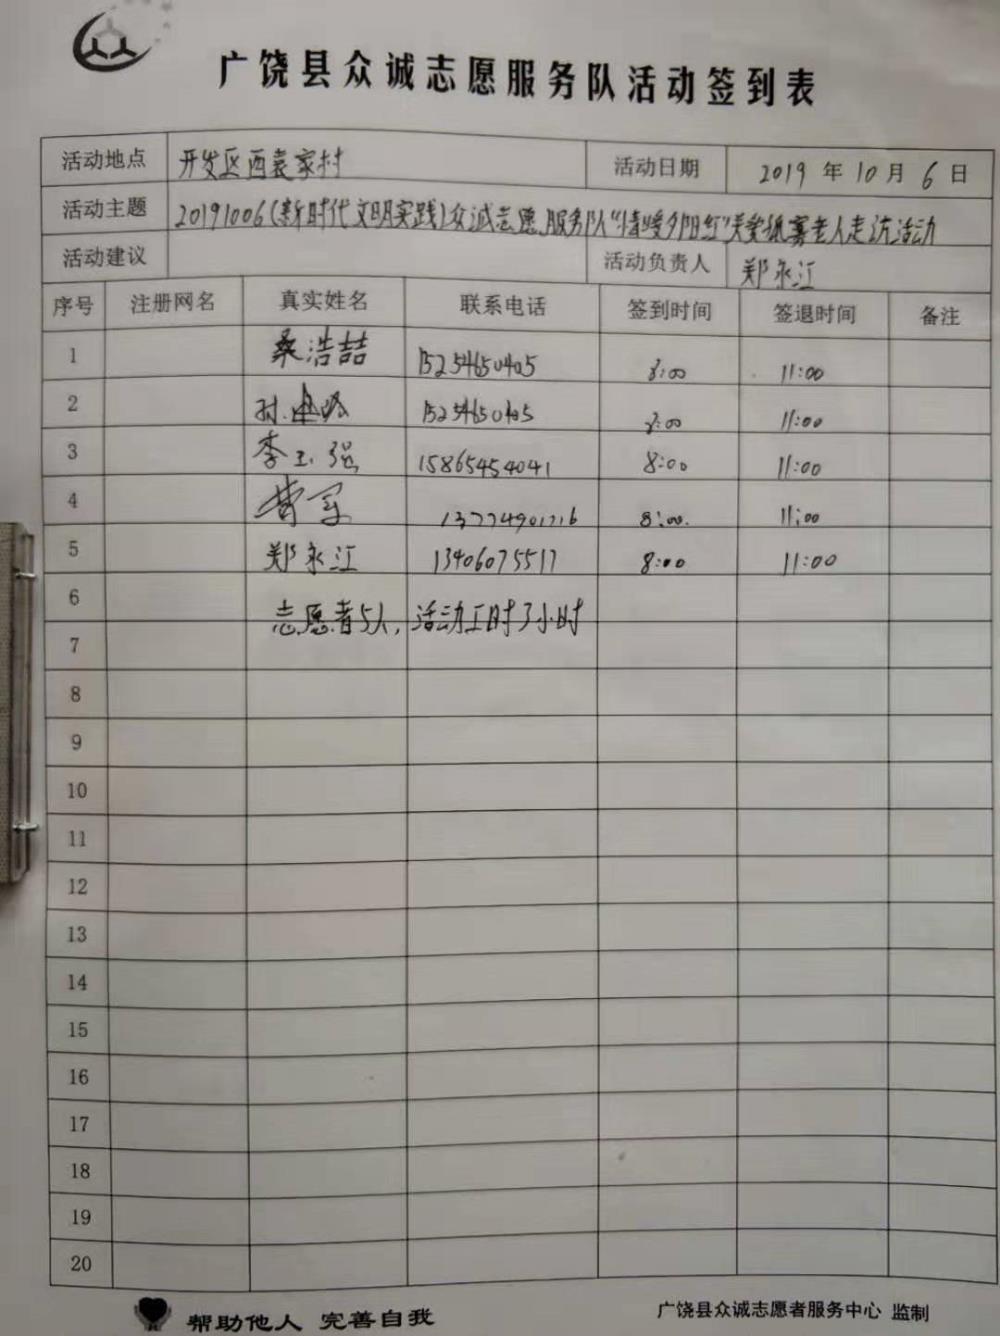 广饶县众诚志愿服务队活动签到表
活动地点 开发区西袁家村 活动日期 2019 年 10 月 6 日
活动主题 20191006(新时代文明实践)众诚志愿服务队"情暖夕阳红"关爱孤寡老人走访活动
活动建议 活动负责人 郑永江
序号 注册网名 真实姓名 联系电话 签到时间 签退时间 备注
1 桑浩喆 15254650405 8:00 11:00
2 孙 15254650405 8:00 11:00
3 李玉强 15865454041 8:00 11:00
4 曹军 13774901716 8:00 11:00
5 郑永江 13406075517 8:00 11:00
6 志愿者5人,活动工时3小时
7
8
9
10
11
12
13
14
15
16
17
18
19
20
帮助他人 完善自我 广饶县众诚志愿者服务中心 监制